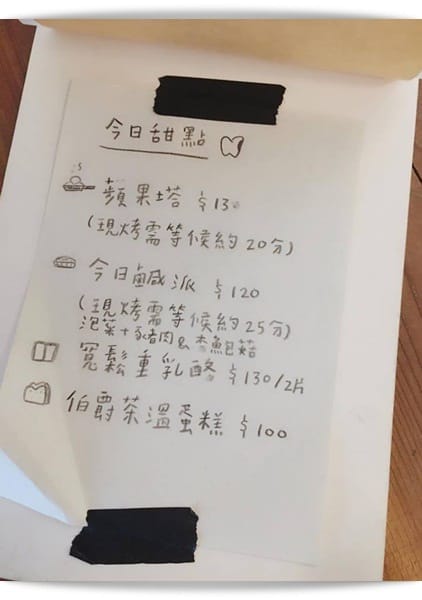 今日甜點
蘋果塔 $130
(現烤需等候約20分)
今日鹹派 $120
(現烤需等候約25分)
泡菜+豬肉&杏鮑菇
寬鬆重乳酪 $130/2片
伯爵茶溫蛋糕 $100